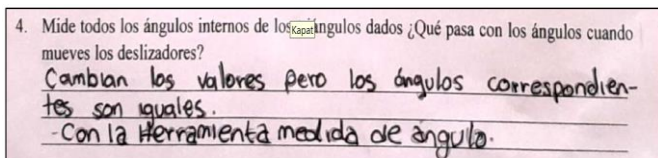 4. Mide todos los ángulos internos de los Kapat ángulos dados ¿Qué pasa con los ángulos cuando
mueves los deslizadores?
Cambian los valores pero los ángulos correspondien-
tes son iguales.
-Con la Herramienta medida de angulo.